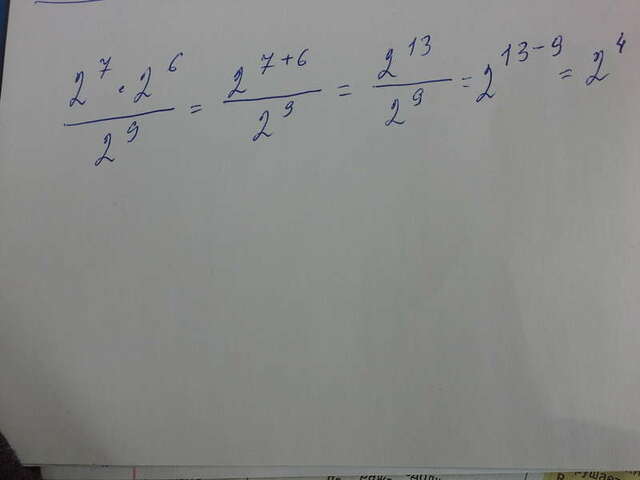 \frac{2^7 \cdot 2^6}{2^9} = \frac{2^{7+6}}{2^9} = \frac{2^{13}}{2^9} = 2^{13-9} = 2^4